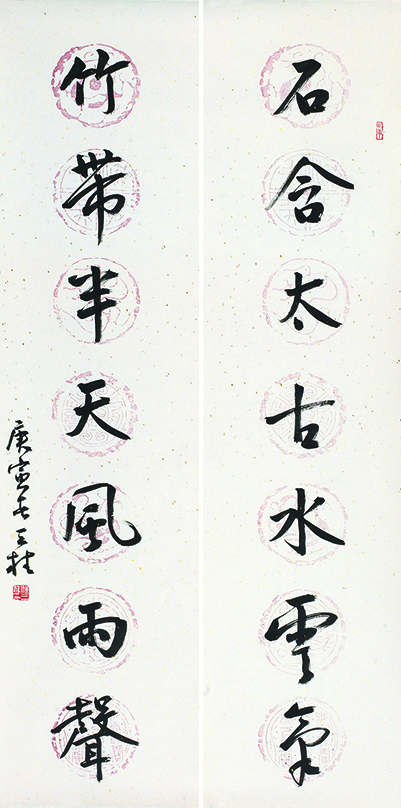 石含太古水雲氣
竹帶半天風雨聲
庚寅